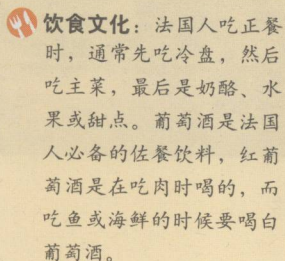 饮食文化：法国人吃正餐
时，通常先吃冷盘，然后
吃主菜，最后是奶酪、水
果或甜点。葡萄酒是法国
人必备的佐餐饮料，红葡
萄酒是在吃肉时喝的，而
吃鱼或海鲜的时候要喝白
葡萄酒。